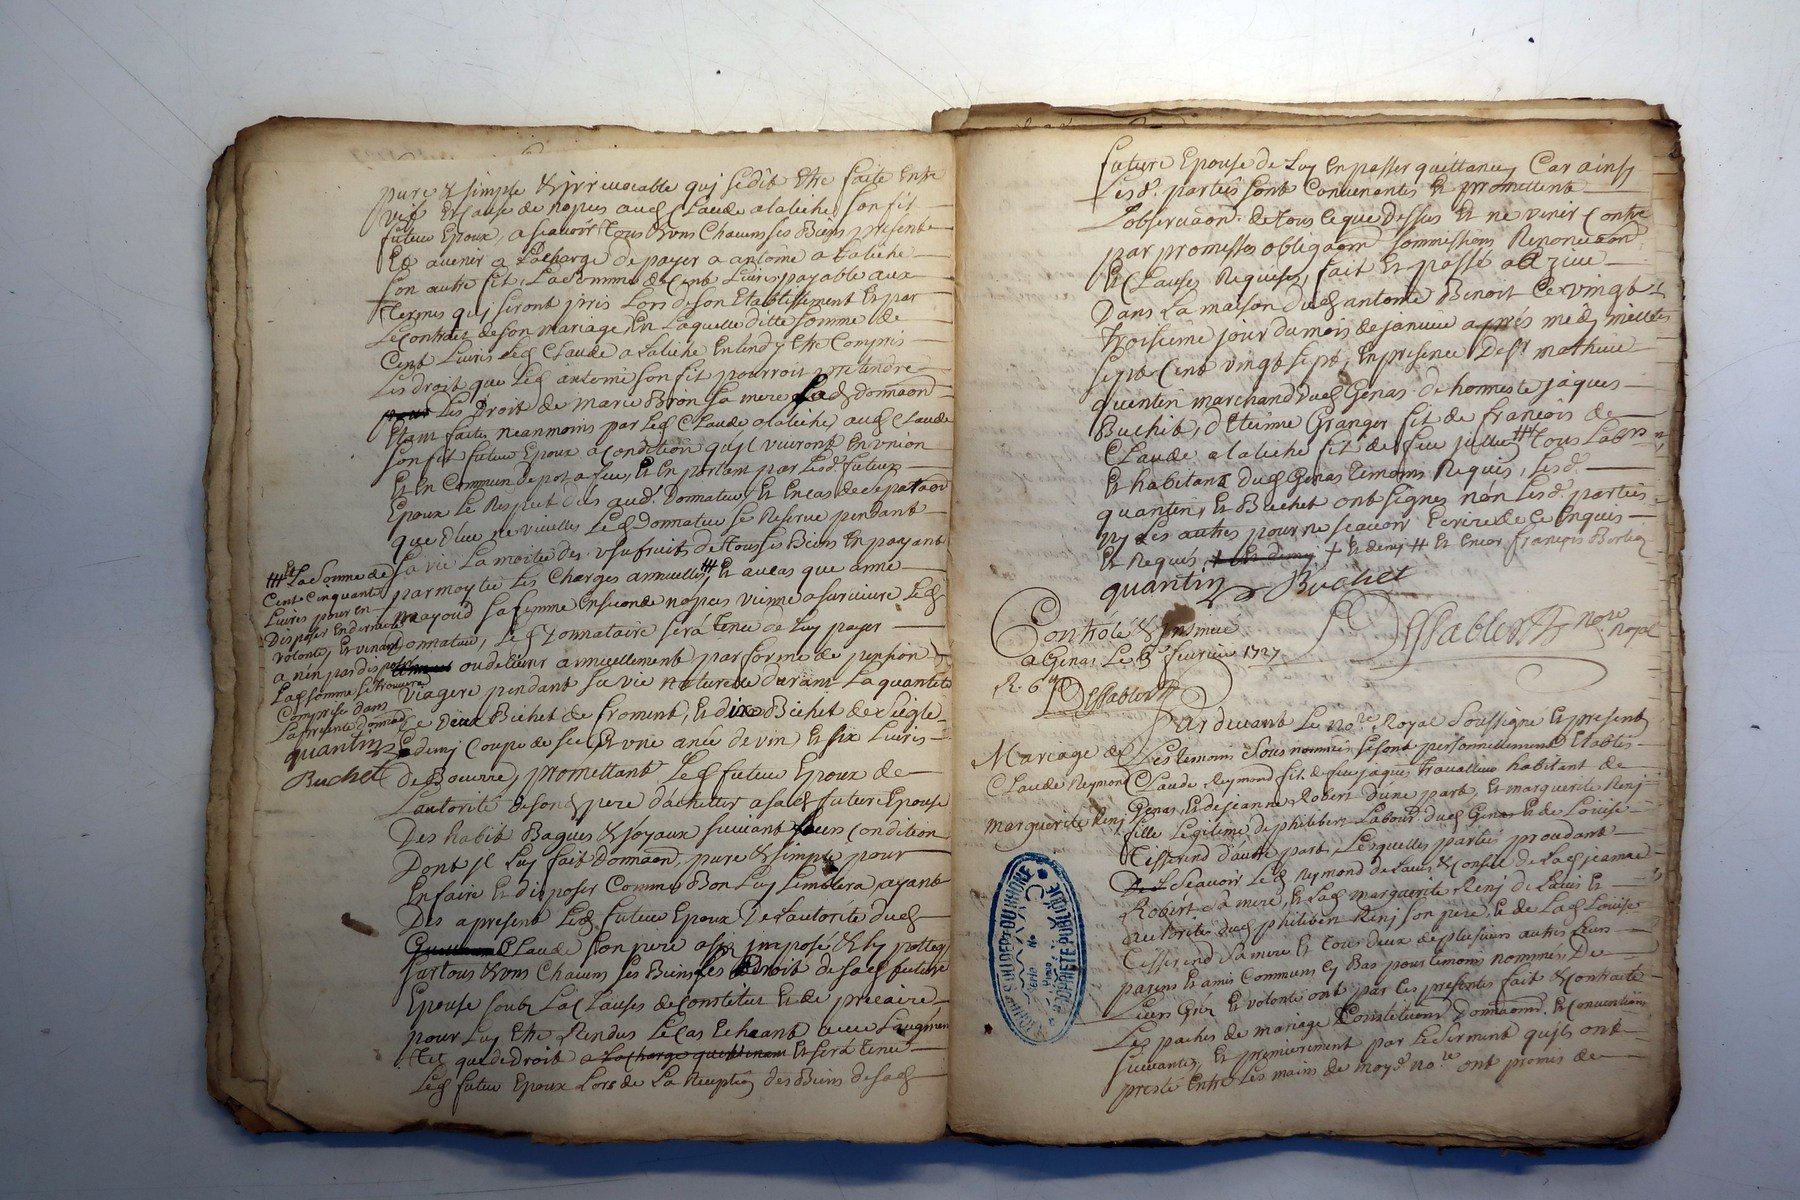 pure & simple & irrevocable quj sedit Etre faite Entre
vifs Et cause de nopces aud Claude alaliche son fit
futeur Epoux, a scavoir tous & uns Chacuns ses Biens presents
Et avenir a Lacharge de payer a antoine alaliche
son autre fit, La somme de Cent Livres payable aux
termes quj seront pris Lors de son Etablissement Et par
Le contract de son mariage, En Laquelle ditte somme de
Cent Livres Led Claude alaliche Entend y Etre Compris
Les droit que Led antoine son fit pourroit pretendre
Les Droit de marie Bron sa mere Lad donnaon
Etant faitte neanmoins par Led Claude alaliche aud Claude
son fit futeur Epoux a condition qujl vivront En union
Et En Commun de pot a feu, Et En portant par Lesd. futeurs
Epoux Le Respect dus aud. Donnateur Et En cas de separaon
que dieu ne veuilles Led donnateur se Reserve pendant
sa vie La moitie des usufruits de tous ses Biens En payant
par moytie Les Charges annuelles, Et aucas que anne
mayoud sa femme En seconde nopces vienne a survivre Led
Donnateur, Led Donnataire sera tenu de Luy payer
ou delivrer annuellement par forme de pension
viagere pendant sa vie naturelle durant La quantité
de deux Bichet de froment, Et dix Bichet de seigle
Edemj Coupe de sel Et une anée de vin Et six Livres
de Beurre, promettant Led futeur Epoux de
Lautorité de sond pere d'achetter a sad future Epouse
Des habit Bagues & joyaux suivant Leurs Condition
Dont jl Luy fait Donnaon, pure & simple pour
En faire Et disposer Comme Bon Luy semblera ayant
Des apresent Led futeur Epoux De Lautorité dud
Claude son pere assis imposé & hypotteq
sur tous & uns Chacuns ses Biens Les Droit de sad future
Epouse soubz La Clauses de Constitut Et de precaire
pour Luy Etre Rendus Le Cas Echeant avec Laugment
tel que de Droit Et sera tenu
Led futeur Epoux Lors de La Reception des Biens de sad
### Et La somme de
Cent Cinquante
Livres pour En
Disposer En derniere
volonté, Et venant
a n'en pas disposer
Lad somme se trouvera
Comprise dans
La presente donnaon
quantin
Buchet
future Epouse de Luy En passer quittance, Car ainsy
Lesd. parties sont Convenantes Et promettent
Lobservaon. de tous ce que Dessus Et ne venir Contre
par promesses obligaon soumissions Renonciaon
Et Clauses Requises, fait Et passé a Azieu
Dans La maison dud antoine Benoit Ce vingt
troisieme jour du mois de janvier apres medy mille
sept Cent vingt sept, En presence de sr mathieu
quentin marchand dud Genas de honneste jaques
Buchet, d'Etienne Granger fit de francois de
Claude alaliche fit de feu jullien ## tous Labrs
Et habitant dud Genas temoins Requis, Lesd.
quantin, Et Buchet ont signes non Lesd. parties
ny Les autres pour ne scavoir Ecrire de ce Enquis
Et Requis, + Et demj ## Et Encor francois Borlia
quantin Buchet
Dessablette nore royal
Controlé & insinué
a Genas Le 3e fevrier 1727
R. 6 # Dessablette
Mariage de
Claude Reymond
marguerite Renj
Pardevant Le nore Royal soussigné Et present
Les temoins sous nommés se sont personnellement Etablis
Claude Reymond fit de feu jaques travailleur habitant de
Genas, Et de jeanne Robert d'une part, Et marguerite Renj
fille Legitime de philibert Labour. dud Genas Et de Louise
tisserend d'autre part, Lesquelles parties procedant
scavoir Led Reymond de Lavis & Conseil de Lad jeanne
Robert sa mere, Et Lad marguerite Renj de Lavis Et
autorité dud philibert Renj son pere, Et de Lad Louise
tisserend sa mere Et tous deux de plusieurs autres Leurs
parens Et amis Communs Cy Bas pour temoins nommés De
Leurs Gré, Et volonté ont par Ces presentes fait & contracté
Les paches de mariage Constitutions Donnaons Et Conventions
suivantes, Et premierement par Le serment qujls ont
presté Entre Les mains de moyd. nore ont promis de
PROPRIETE PUBLIQUE